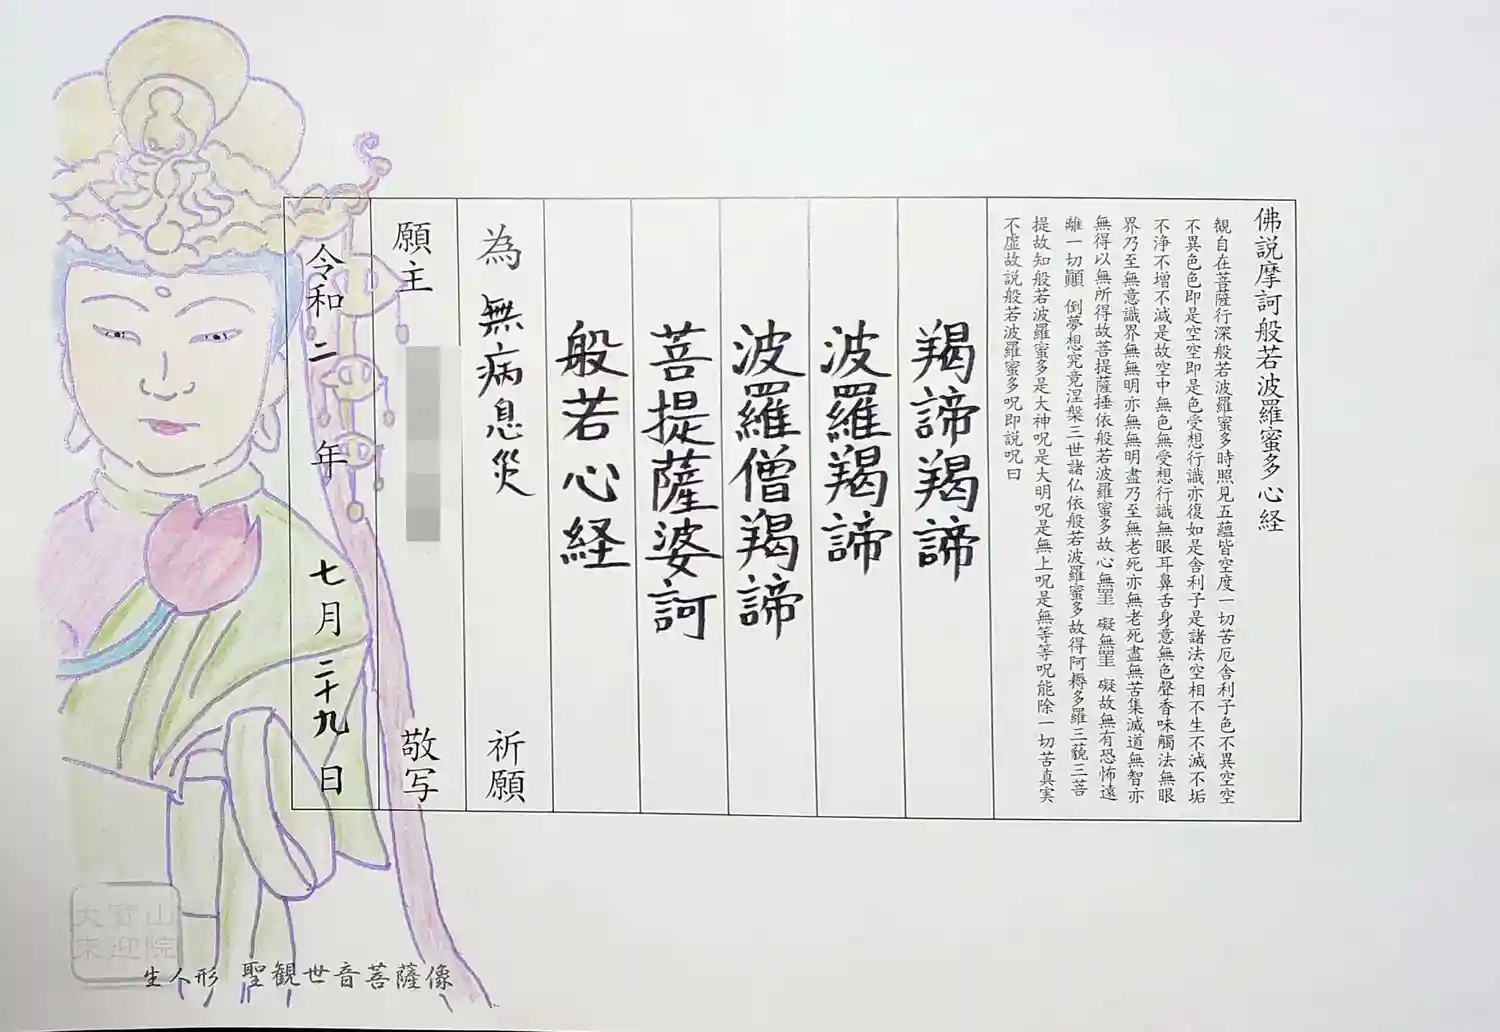 佛説摩訶般若波羅蜜多心経
観自在菩薩行深般若波羅蜜多時照見五蘊皆空度一切苦厄舎利子色不異空空
不異色色即是空空即是色受想行識亦復如是舎利子是諸法空相不生不滅不垢
不浄不増不減是故空中無色無受想行識無眼耳鼻舌身意無色聲香味觸法無眼
界乃至無意識界無無明亦無無明盡乃至無老死亦無老死盡無苦集滅道無智亦
無得以無所得故菩提薩埵依般若波羅蜜多故心無罣 礙無罣 礙故無有恐怖遠
離一切顚 倒夢想究竟涅槃三世諸仏依般若波羅蜜多故得阿耨多羅三藐三菩
提故知般若波羅蜜多是大神呪是大明呪是無上呪是無等等呪能除一切苦真実
不虚故説般若波羅蜜多呪即説呪曰
羯諦羯諦
波羅羯諦
波羅僧羯諦
菩提薩婆訶
般若心経
為 無病息災 祈願
願主 敬写
令和二年 七月 二十九日
大寶山
来迎院
生人形 聖観世音菩薩像